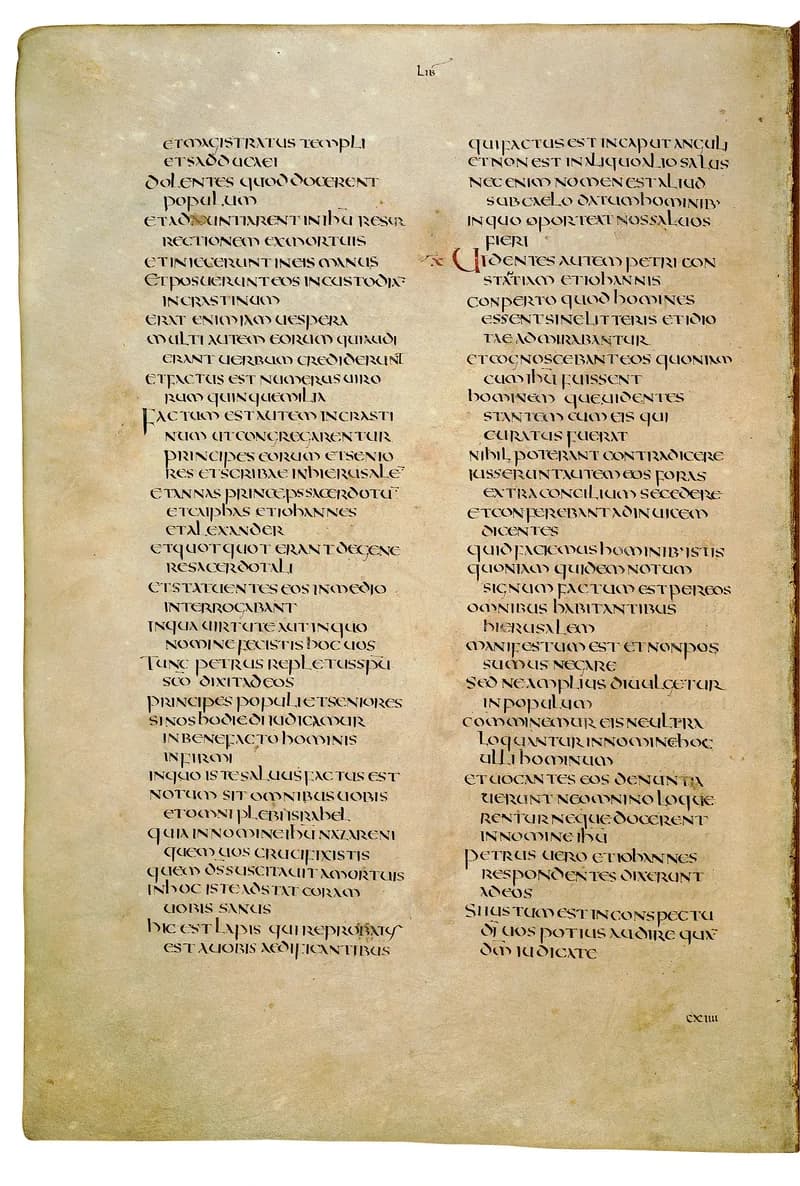 Lib
et magistratus templi
et sadducaei
dolentes quod docerent
populum
et adnuntiarent in ihū resur
rectionem ex mortuis
et iniecerunt in eis manus
et posuerunt eos in custodiā
in crastinum
erat enim iam uespera
multi autem eorum qui audi
erant uerbum crediderunt
et factus est numerus uiro
rum quinque milia
Factum est autem in crasti
num ut congregarentur
principes eorum et senio
res et scribae in hierusalē
et annas princeps sacerdotū
et caiphas et iohannes
et alexander
et quotquot erant de gene
re sacerdotali
et statuentes eos in medio
interrogabant
in qua uirtute aut in quo
nomine fecistis hoc uos
Tunc petrus repletus spū
scō dixit ad eos
principes populi et seniores
si nos hodie diiudicamur
in benefacto hominis
infirmi
in quo iste saluus factus est
notum sit omnibus uobis
et omni plebi israhel
quia in nomine ihū nazareni
quem uos crucifixistis
quem ds̄ suscitauit a mortuis
in hoc iste adstat coram
uobis sanus
hic est lapis qui reprobatus
est a uobis aedificantibus
qui factus est in caput anguli
et non est in aliquo alio salus
nec enim nomen est aliud
sub caelo datum hominib·
in quo oporteat nos saluos
fieri
x Uidentes autem petri con
stantiam et iohannis
conperto quod homines
essent sine litteris et idio
tae admirabantur
et cognoscebant eos quoniam
cum ihū fuissent
hominem que uidentes
stantem cum eis qui
curatus fuerat
nihil poterant contradicere
iusserunt autem eos foras
extra concilium secedere
et conferebant ad inuicem
dicentes
quid faciemus hominib· istis
quoniam quidem notum
signum factum est per eos
omnibus habitantibus
hierusalem
manifestum est et non pos
sumus negare
Sed ne amplius diuulgetur
in populum
comminemur eis ne ultra
loquantur in nomine hoc
ulli hominum
et uocantes eos denuntia
uerunt ne omnino loque
rentur neque docerent
in nomine ihū
petrus uero et iohannes
respondentes dixerunt
ad eos
Si iustum est in conspectu
dī uos potius audire quā
dm̄ iudicate
cxiiii